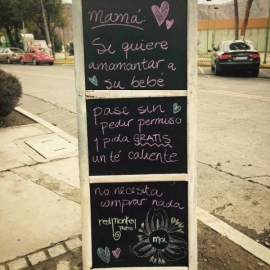 Mamá:
Se quiere
amamantar a
su bebé
pase sin
pedir permiso
y pida GRATIS
un té caliente
no necesita
comprar nada
redmonkey